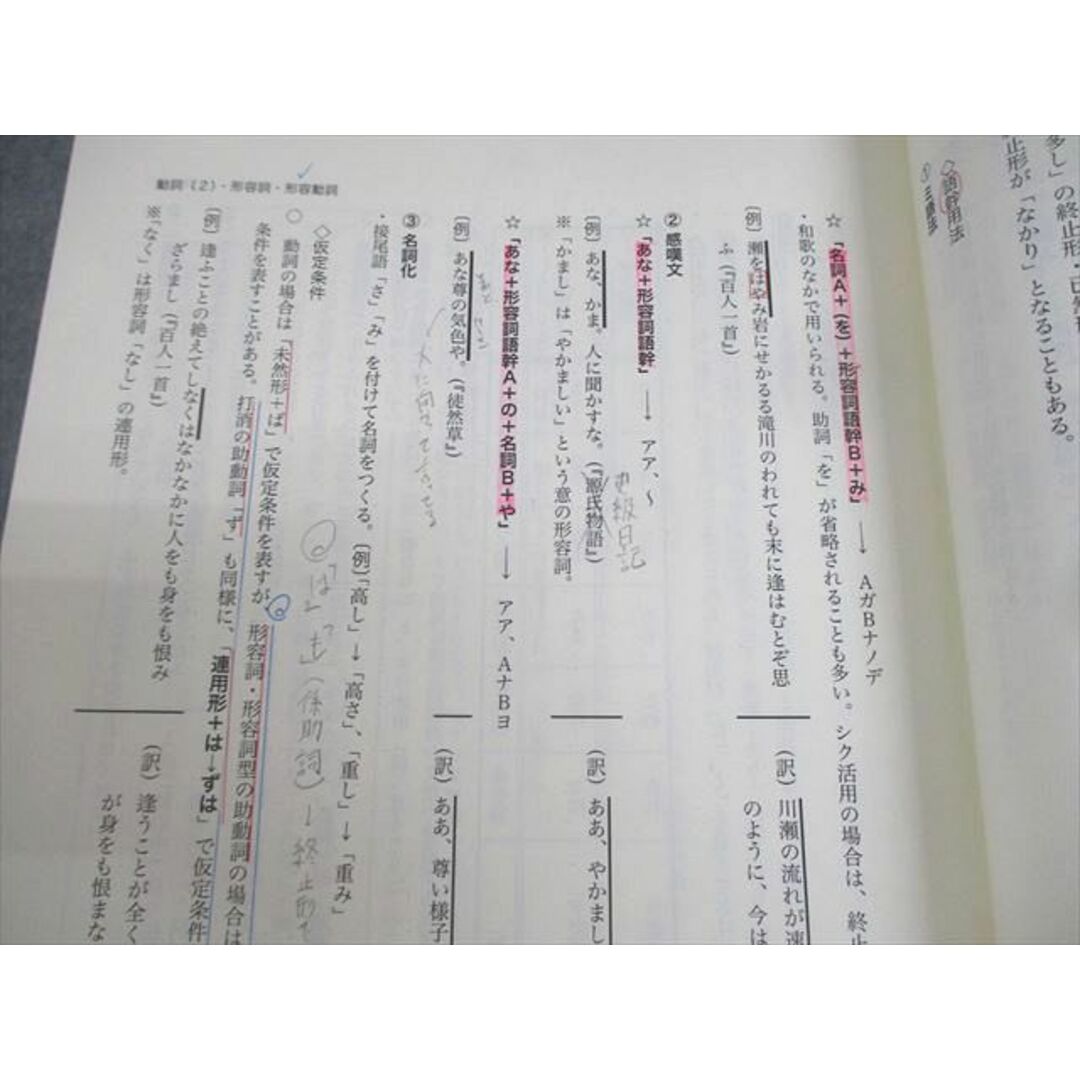 多し」の終止形・已然
止形が「なかり」となることもある。
◇語幹用法
☆「名詞A+(を)+形容詞語幹B+み」→ AガBナノデ
・和歌のなかで用いられる。助詞「を」が省略されることも多い。シク活用の場合は、終止
(例) 瀬をはやみ岩にせかるる滝川のわれても末に逢はむとぞ思
ふ(『百人一首』)
(訳) 川瀬の流れが速
のように、今は
② 感嘆文
☆「あな+形容詞語幹」→ アア、~
(例) あな、かま。人に聞かすな。(『源氏物語』)
更級日記
※「かまし」は「やかましい」という意の形容詞。
(訳) ああ、やかまし
☆「あな+形容詞語幹A+の+名詞B+や」→ アア、AナBヨ
(例) あな尊の気色や。(『徒然草』)
(訳) ああ、尊い様子
③ 名詞化
・接尾語「さ」「み」を付けて名詞をつくる。(例)「高し」→「高さ」、「重し」→「重み」
「は」「も」(係助詞)→終止形で
◇仮定条件
○ 動詞の場合は「未然形+ば」で仮定条件を表すが、形容詞・形容詞型の助動詞の場合は
条件を表すことがある。打消の助動詞「ず」も同様に、「連用形+は→ずは」で仮定条件
(例) 逢ふことの絶えてしなくはなかなかに人をも身をも恨み
ざらまし(『百人一首』)
※「なく」は形容詞「なし」の連用形。
(訳) 逢うことが全く
が身をも恨まな
動詞(2)・形容詞・形容動詞